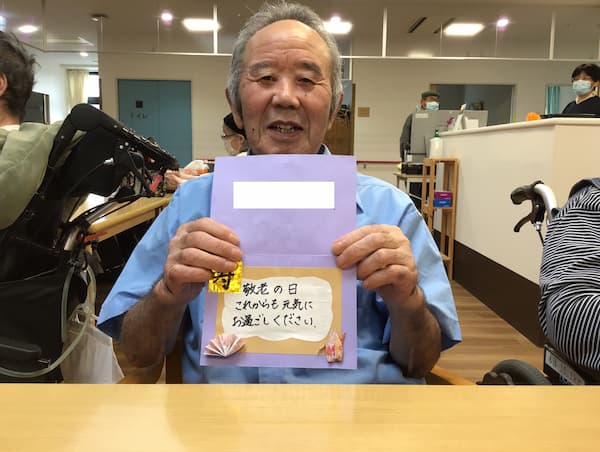 トイレ
寿
敬老の日
これからも元気に
お過ごしください。